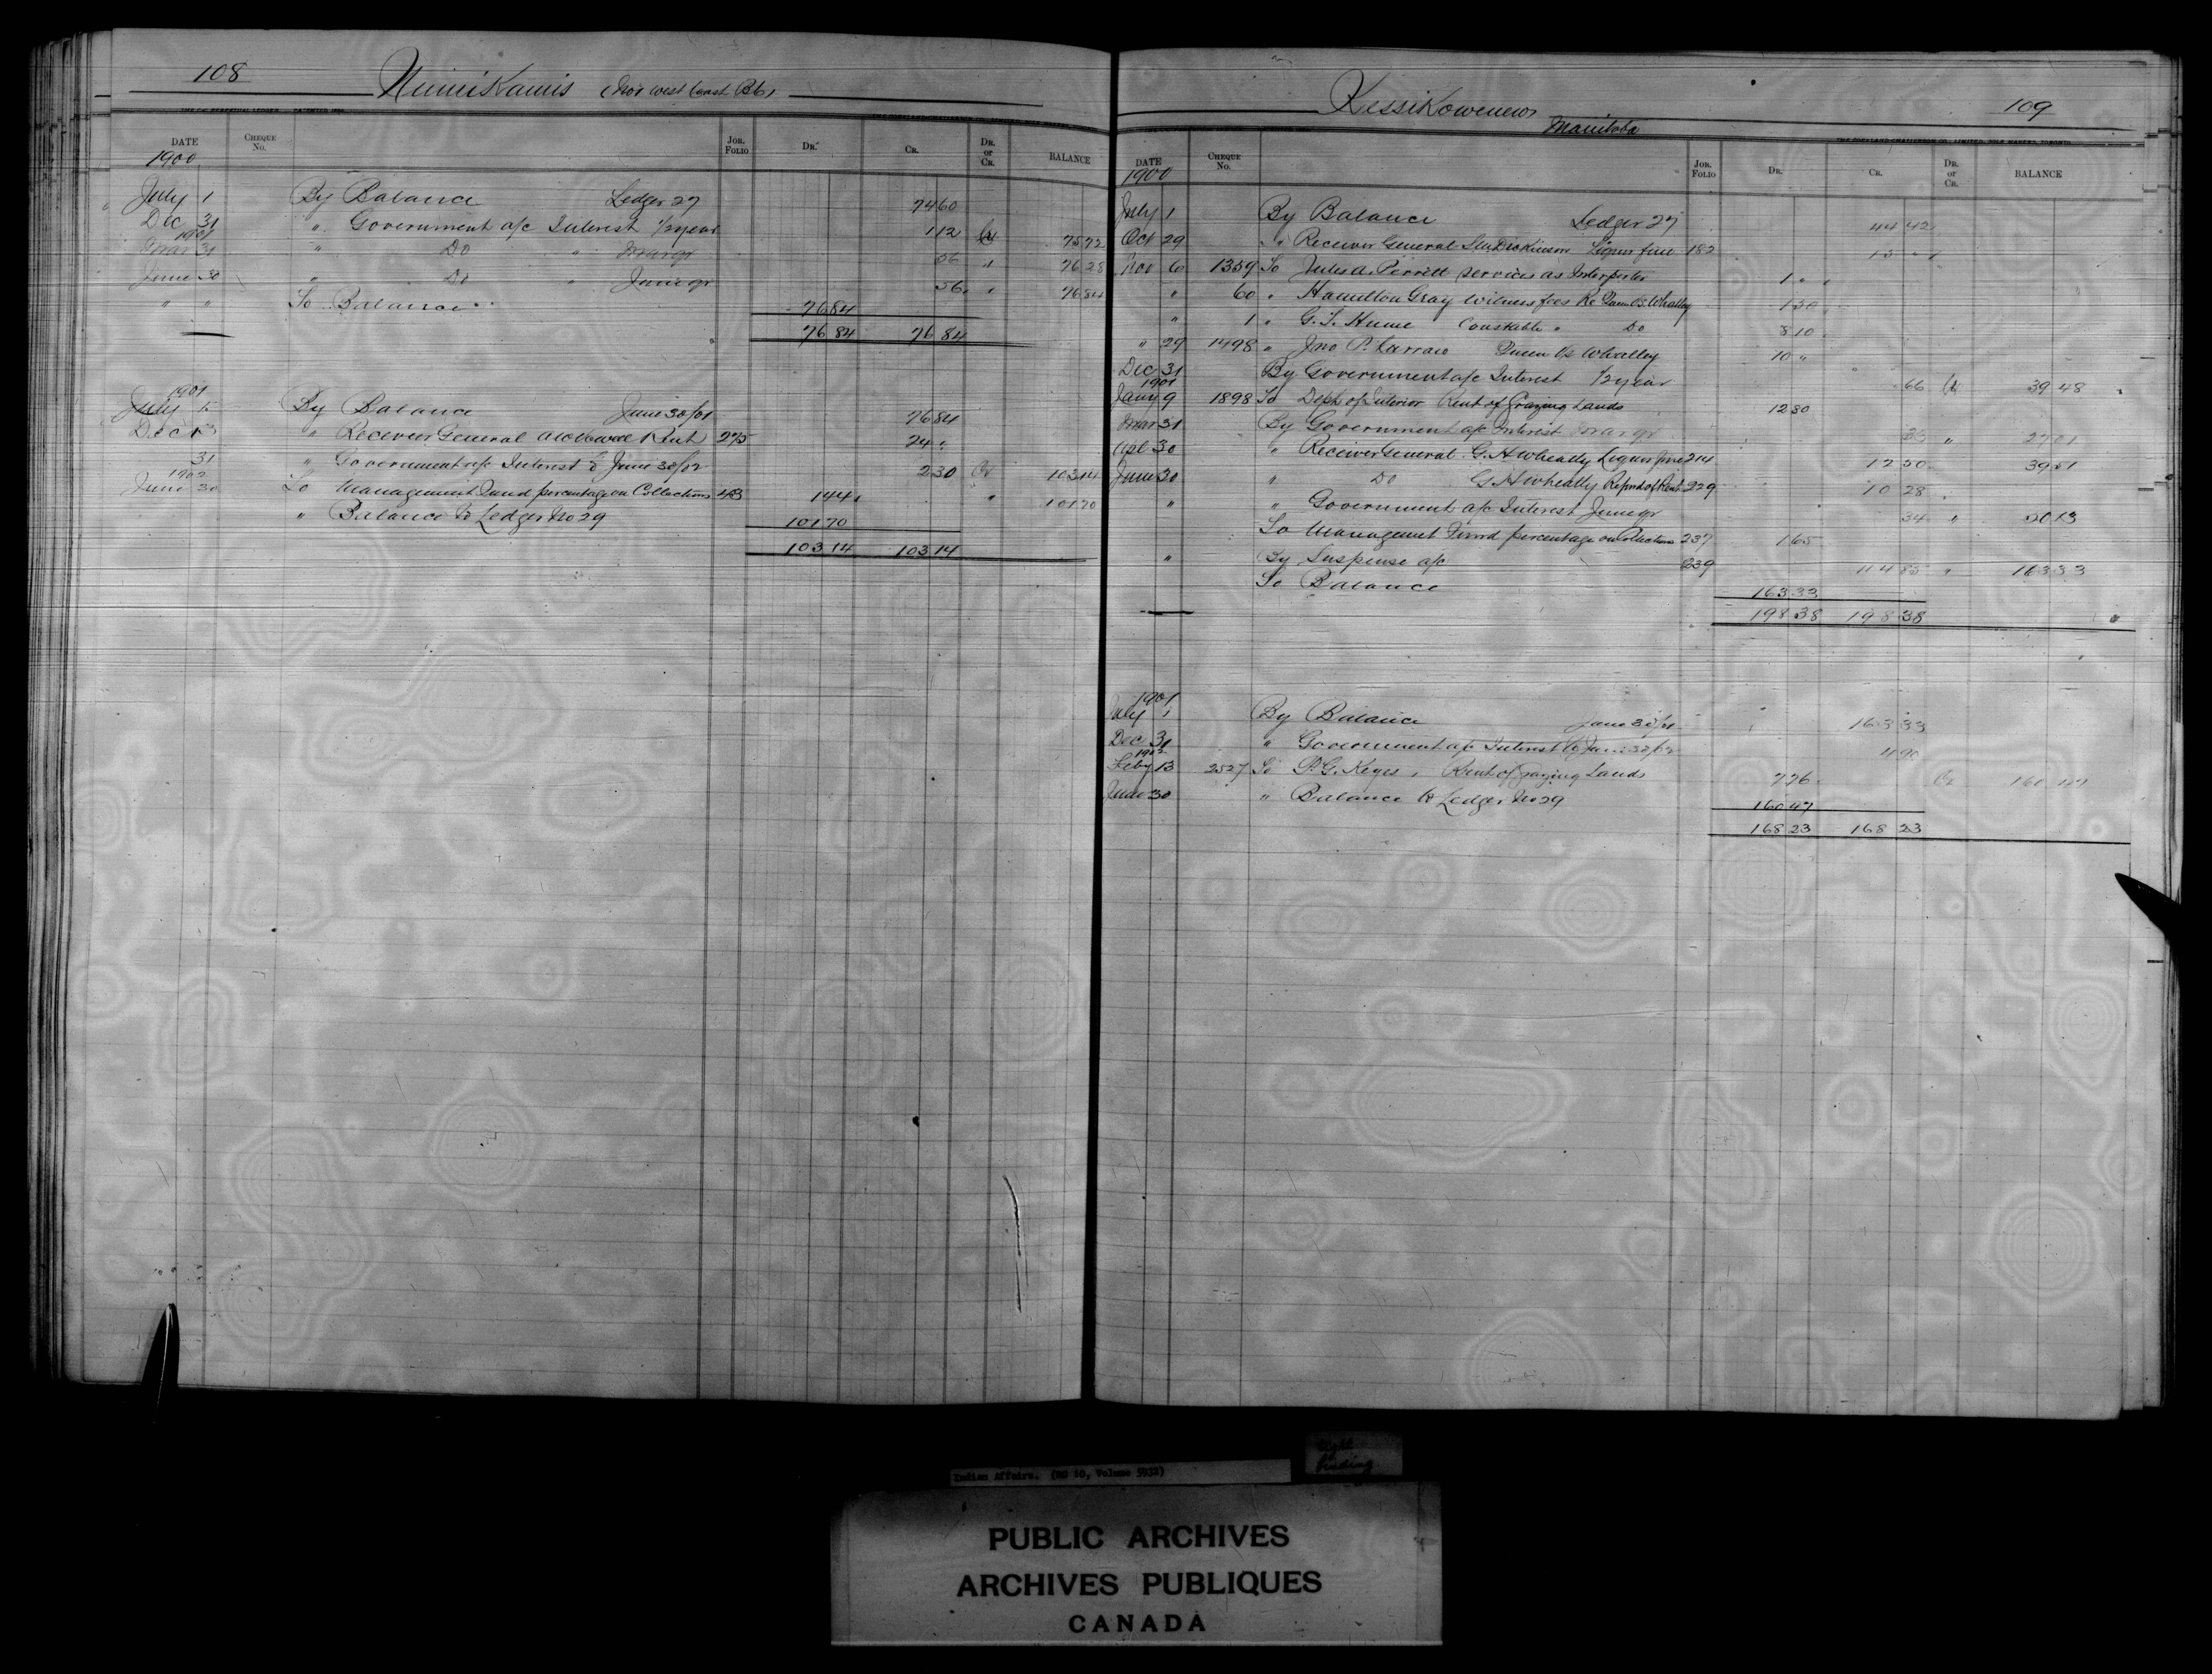 108
Numikamis (Nor West Coast B.C.)
DATE CHEQUE No. JOR. FOLIO DR. CR. DR. or CR. BALANCE
1900
July 1 By Balance Ledger 27 74 60
Dec 31 " Government a/c Interest 1/2 year 1 12 Cr 75 72
1901
Mar 31 " Do " Mar qr 56 " 76 28
June 30 " Do " June qr 56 " 76 84
" " To Balance 76 84
76 84 76 84
1901
July 1 By Balance June 30/01 76 84
Dec 13 " Receiver General Rent 275 24 "
31 " Government a/c Interest to June 30/02 2 30 Cr 103 14
1902
June 30 To Management Fund percentage on Collections 483 1 44 " 101 70
" Balance to Ledger No 29 101 70
103 14 103 14
109
Kessikowenew
Manitoba
DATE CHEQUE No. JOR. FOLIO DR. CR. DR. or CR. BALANCE
1900
July 1 By Balance Ledger 27 44 42
Oct 29 " Receiver General Dickinson Liquor fine 182 15 "
Nov 6 1359 To Jules A. Perritt services as Interpreter 1 "
" 60 " Hamilton Gray witness fees Re Queen vs. Whalley 1 50
" 1 " G. T. Hume Constable " Do 8 10
" 29 1498 " Jno P. Queen vs Whalley 10 "
Dec 31 By Government a/c Interest 1/2 year 66 Cr 39 48
1901
Jany 9 1898 To Dept of Interior Rent of Grazing Lands 12 80
Mar 31 By Government a/c Interest Mar qr 33 " 27 01
Apl 30 " Receiver General G. H Wheally Liquor fine 214 12 50 39 51
June 30 " Do G. H Wheally Refund of Rent 229 10 28
" " Government a/c Interest June qr 34 " 50 13
To Management Fund percentage on Collections 237 1 65
" By Suspense a/c 239 114 85 " 163 33
To Balance 163 33
198 38 198 38
1901
July 1 By Balance June 30/01 163 33
Dec 31 " Government a/c Interest to June 30/02 4 90
1902
Feby 13 2527 To P. G. Keyes, Rent of Grazing Lands 7 76 Cr 160 47
June 30 " Balance to Ledger No 29 160 47
168 23 168 23
Indian Affairs. (RG 10, Volume 5932)
tight binding
PUBLIC ARCHIVES
ARCHIVES PUBLIQUES
CANADA